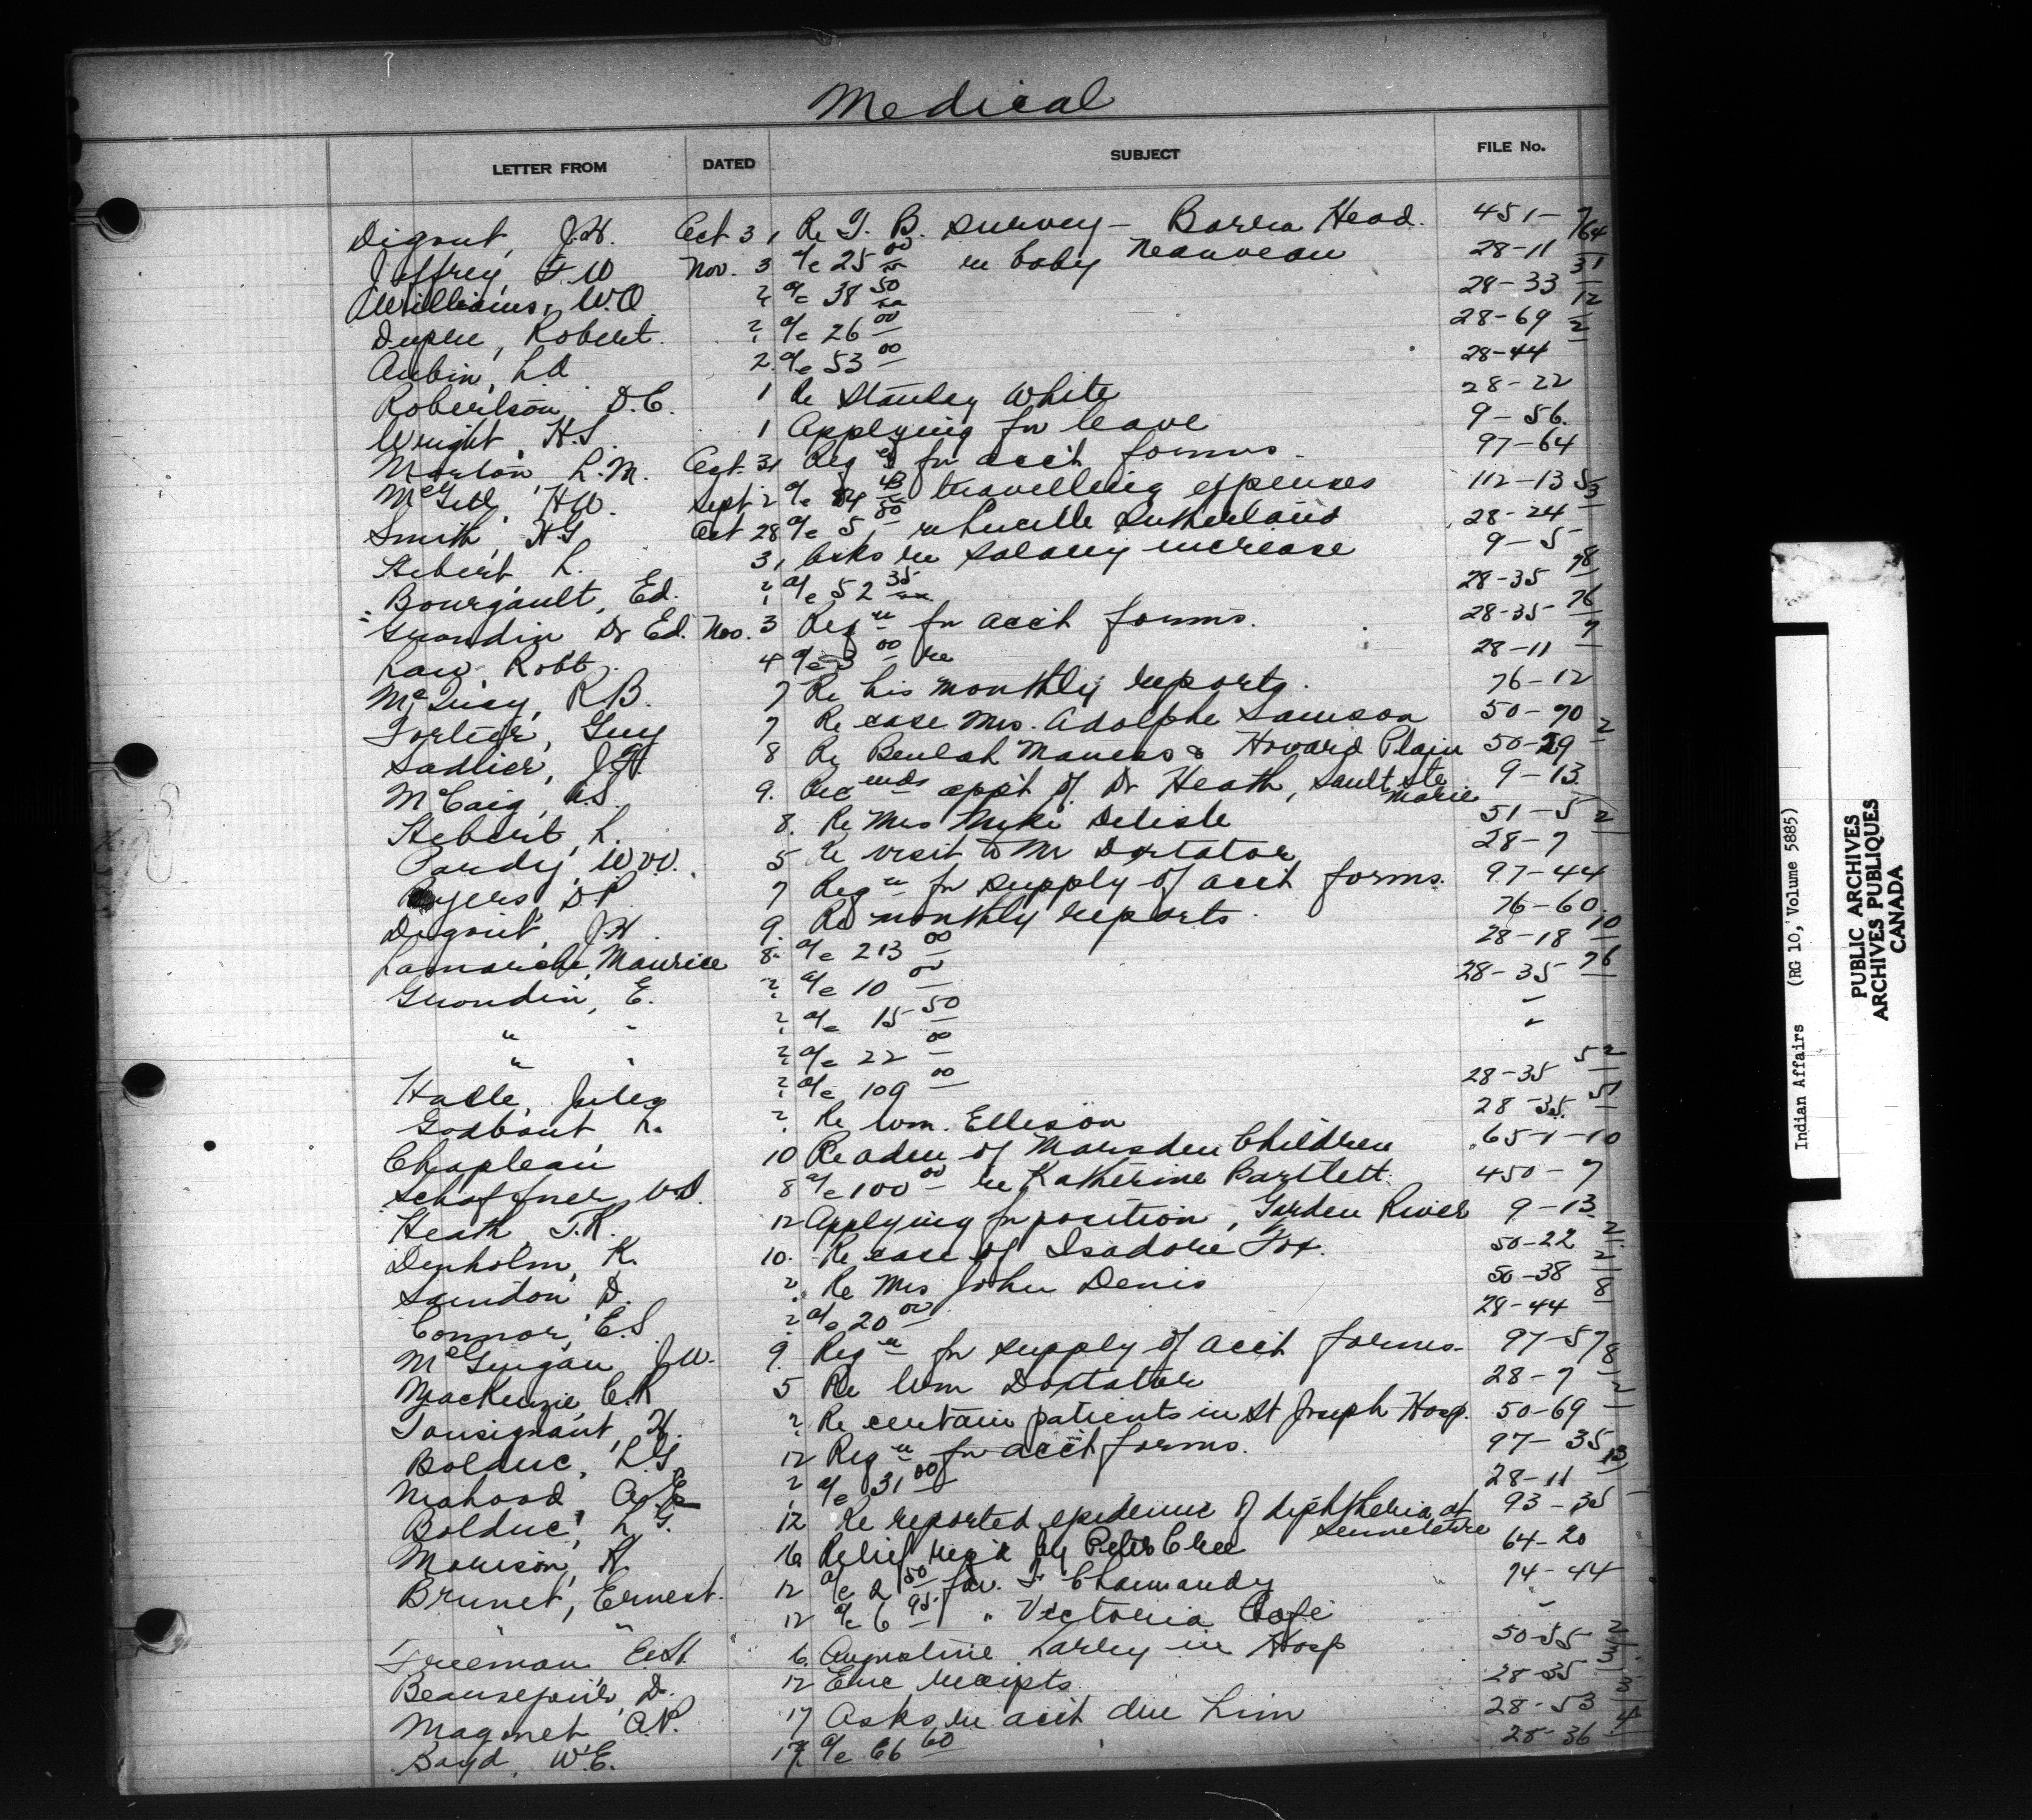 Medical
LETTER FROM DATED SUBJECT FILE No.
Digout, J.H. Oct 31 Re T.B. survey - Barra Head. 451-7/64
Jeffrey, F W Nov. 3 a/c 25 00 re baby 28-11 31
Williams, W.O. a/c 38 50 28-33 12
Dupre, Robert. a/c 26 00 28-69 2
Aubin, L.O 2. a/c 53 00 28-44
Robertson, D.C. 1 Re Stanley White 28-22
Wright, H.S. 1 Applying for leave 9-56.
Morton, L.M. Oct. 31 Reqs for acct forms. 97-64
McGill, HW. Sept 2 a/c 84 travelling expenses 112-13 53
Smith, HG Oct 28 a/c 5 80 re Lucille Sutherland 28-24
Hebert, L. 31 Asks re salary increase 9-5
Bourgault, Ed. a/c 52 35 28-35 78
Grondin Dr Ed. Nov. 3 Req for acct forms. 28-35 76
Law, Robt. 4 a/c 3 00 re 28-11 7
McQuay, R.B. 7 Re his monthly reports. 76-12
Fortier, Guy 7 Re case Mrs. Adolphe Samson 50-70
Sadlier, J.F. 8 Re Beulah Maness & Howard Plain 50-29 2
McCaig, A.S. 9. Recends app't of Dr Heath, Sault Ste Marie 9-13
Hebert, L. 8. Re Mrs Mike Delisle 51-5 2
Pardy, W.W. 5 Re visit to Mr Doxtator 28-7
Byers, D P. 7 Req for supply of acct forms. 97-44
Digout, J.H. 9. Re monthly reports. 76-60
Lamarche, Maurice 8. a/c 213 00 28-18 10
Grondin, E. a/c 10 00 28-35 76
" " a/c 15 50 "
" " a/c 22 00 "
Halle, Jules a/c 109 00 28-35 52
Godbout, L. Re Wm. Ellison 28-35. 51
Chapleau 10 Re adm of Marsden Children 65-1-10
Schaffner, V.D. 8 a/c 100 00 re Katherine Bartlett. 450-7
Heath, T.R. 12 Applying for position, Garden River 9-13.
Denholm, K. 10. Re case of Isadore Fox. 50-22 2
Saindon, D. Re Mrs John Denis 50-38 2
Connor, E.S. a/c 20 00 28-44 8
McGuigan J.W. 9. Req for supply of acct forms. 97-57
MacKenzie, C.R 5 Re Wm Doxtator 28-7 8
Tousignant, H. Re certain patients in St Joseph Hosp. 50-69 2
Bolduc, L.G. 12 Req for acct forms. 97-35
Mahood, A.E a/c 31 00 28-11 13
Bolduc, L.G. 12 Re reported epidemic of diphtheria at Senneterre 93-35
Morrison, R. 16 Relief req'd by Peter Cree 64-20
Brunet, Ernest. 12 a/c 2 50 fav. F Chamandy 74-44
" " 12 a/c 6 95 " Victoria Cafe "
Freeman E.H. 6. Angeline Larley in Hosp 50-55 2
Beausejour, D. 12 Enc receipts 28-35
Magonet A.P. 17 Asks re acct due him 28-53
Boyd, W.E. 17 a/c 66 60 28-36 4
Indian Affairs (RG 10, Volume 5885)
PUBLIC ARCHIVES
ARCHIVES PUBLIQUES
CANADA